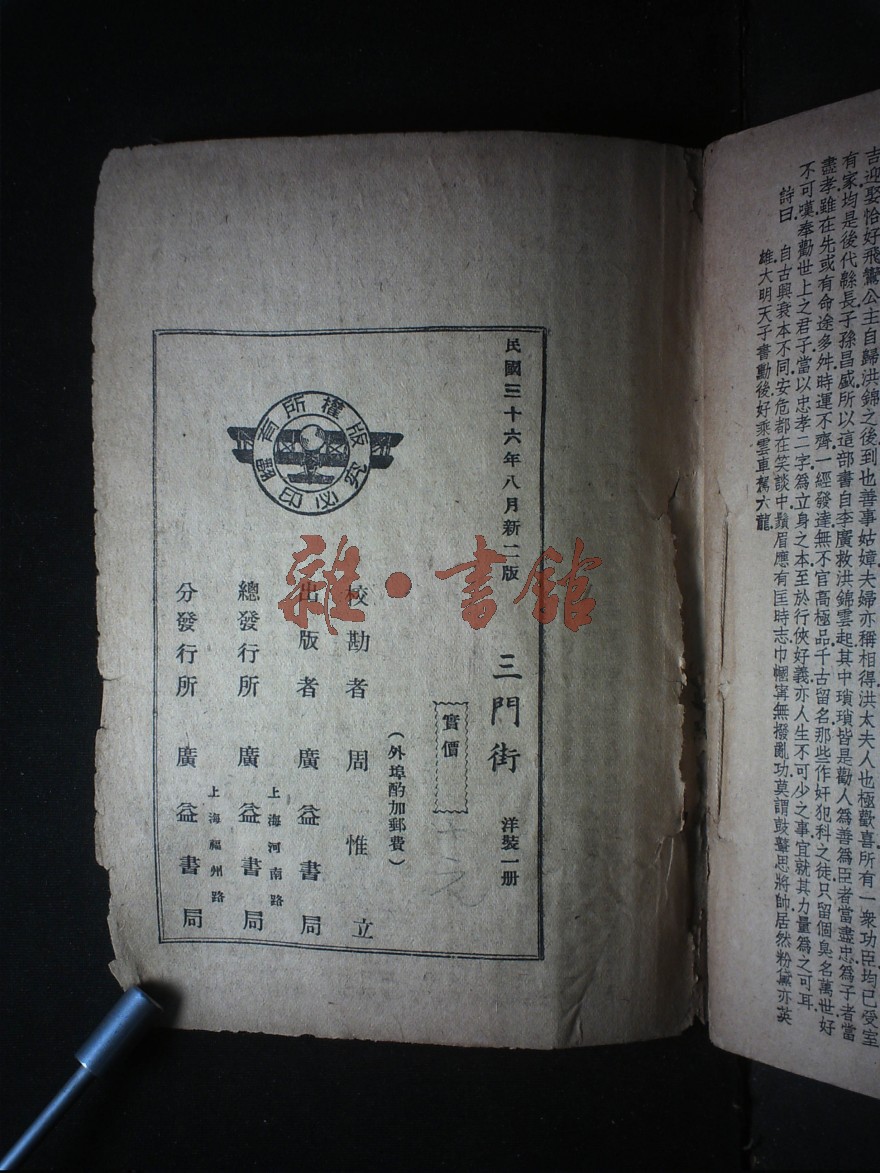 吉.迎娶恰好飛鸞公主自歸洪錦之後到也善事姑嫜夫婦亦稱相得洪太夫人也極歡喜所有一衆功臣均已受室
有家均是後代緜長子孫昌盛所以這部書自李廣救洪錦雲起其中瑣瑣皆是勸人爲善爲臣者當盡忠爲子者當
盡孝雖在先或有命途多舛時運不齊一經發達無不官高極品千古留名那些作奸犯科之徒只留個臭名萬世好
不可嘆奉勸世上之君子當以忠孝二字爲立身之本至於行俠好義亦人生不可少之事宜就其力量爲之可耳
詩曰
自古興衰本不同安危都在笑談中鬚眉應有匡時志巾幗寗無撥亂功莫謂鼓鼙思將帥居然粉黛亦英
雄大明天子書勳後好乘雲車駕六龍
民國三十六年八月新二版
三門街 洋裝一册
實價
(外埠酌加郵費)
校勘者 周惟立
出版者 廣益書局
上海河南路
總發行所 廣益書局
上海福州路
分發行所 廣益書局
版權所有
翻印必究
雜·書館